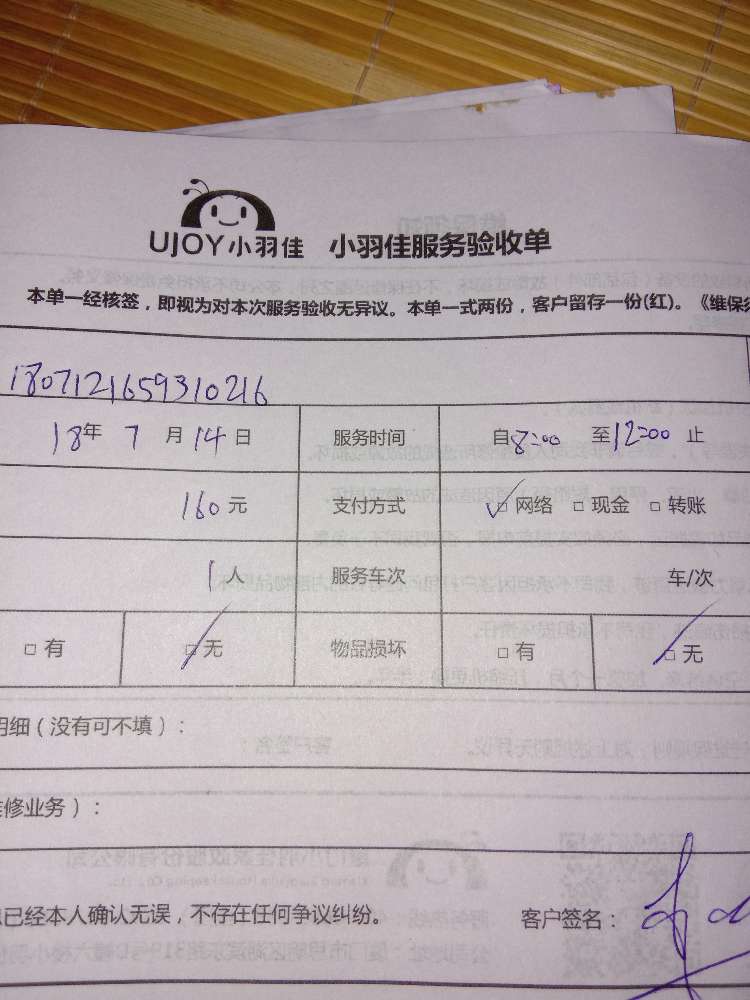 UJOY小羽佳 小羽佳服务验收单
本单一经核签，即视为对本次服务验收无异议。本单一式两份，客户留存一份(红)。《维保须
1807121659310216
18年 7 月 14 日 服务时间 自8:00 至12:00 止
160元 支付方式 ☑网络 □现金 □转账
1人 服务车次 车/次
□有 ☑无 物品损坏 □有 ☑无
明细（没有可不填）：
维修业务）：
已经本人确认无误，不存在任何争议纠纷。 客户签名：